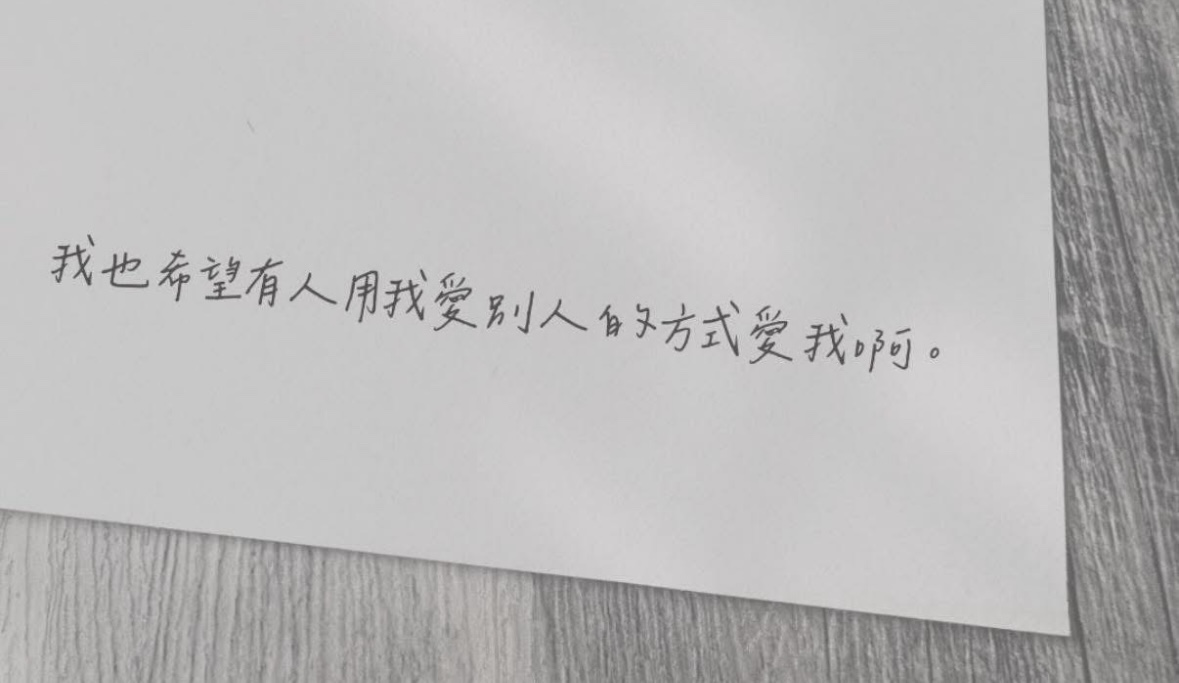 我也希望有人用我愛別人的方式愛我啊。